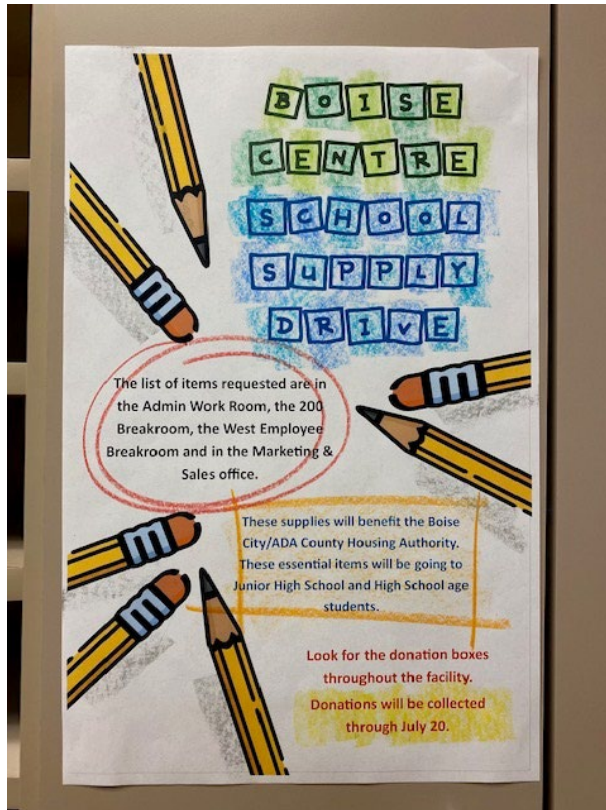 BOISE
CENTRE
SCHOOL
SUPPLY
DRIVE
The list of items requested are in
the Admin Work Room, the 200
Breakroom, the West Employee
Breakroom and in the Marketing &
Sales office.
These supplies will benefit the Boise
City/ADA County Housing Authority.
These essential items will be going to
Junior High School and High School age
students.
Look for the donation boxes
throughout the facility.
Donations will be collected
through July 20.